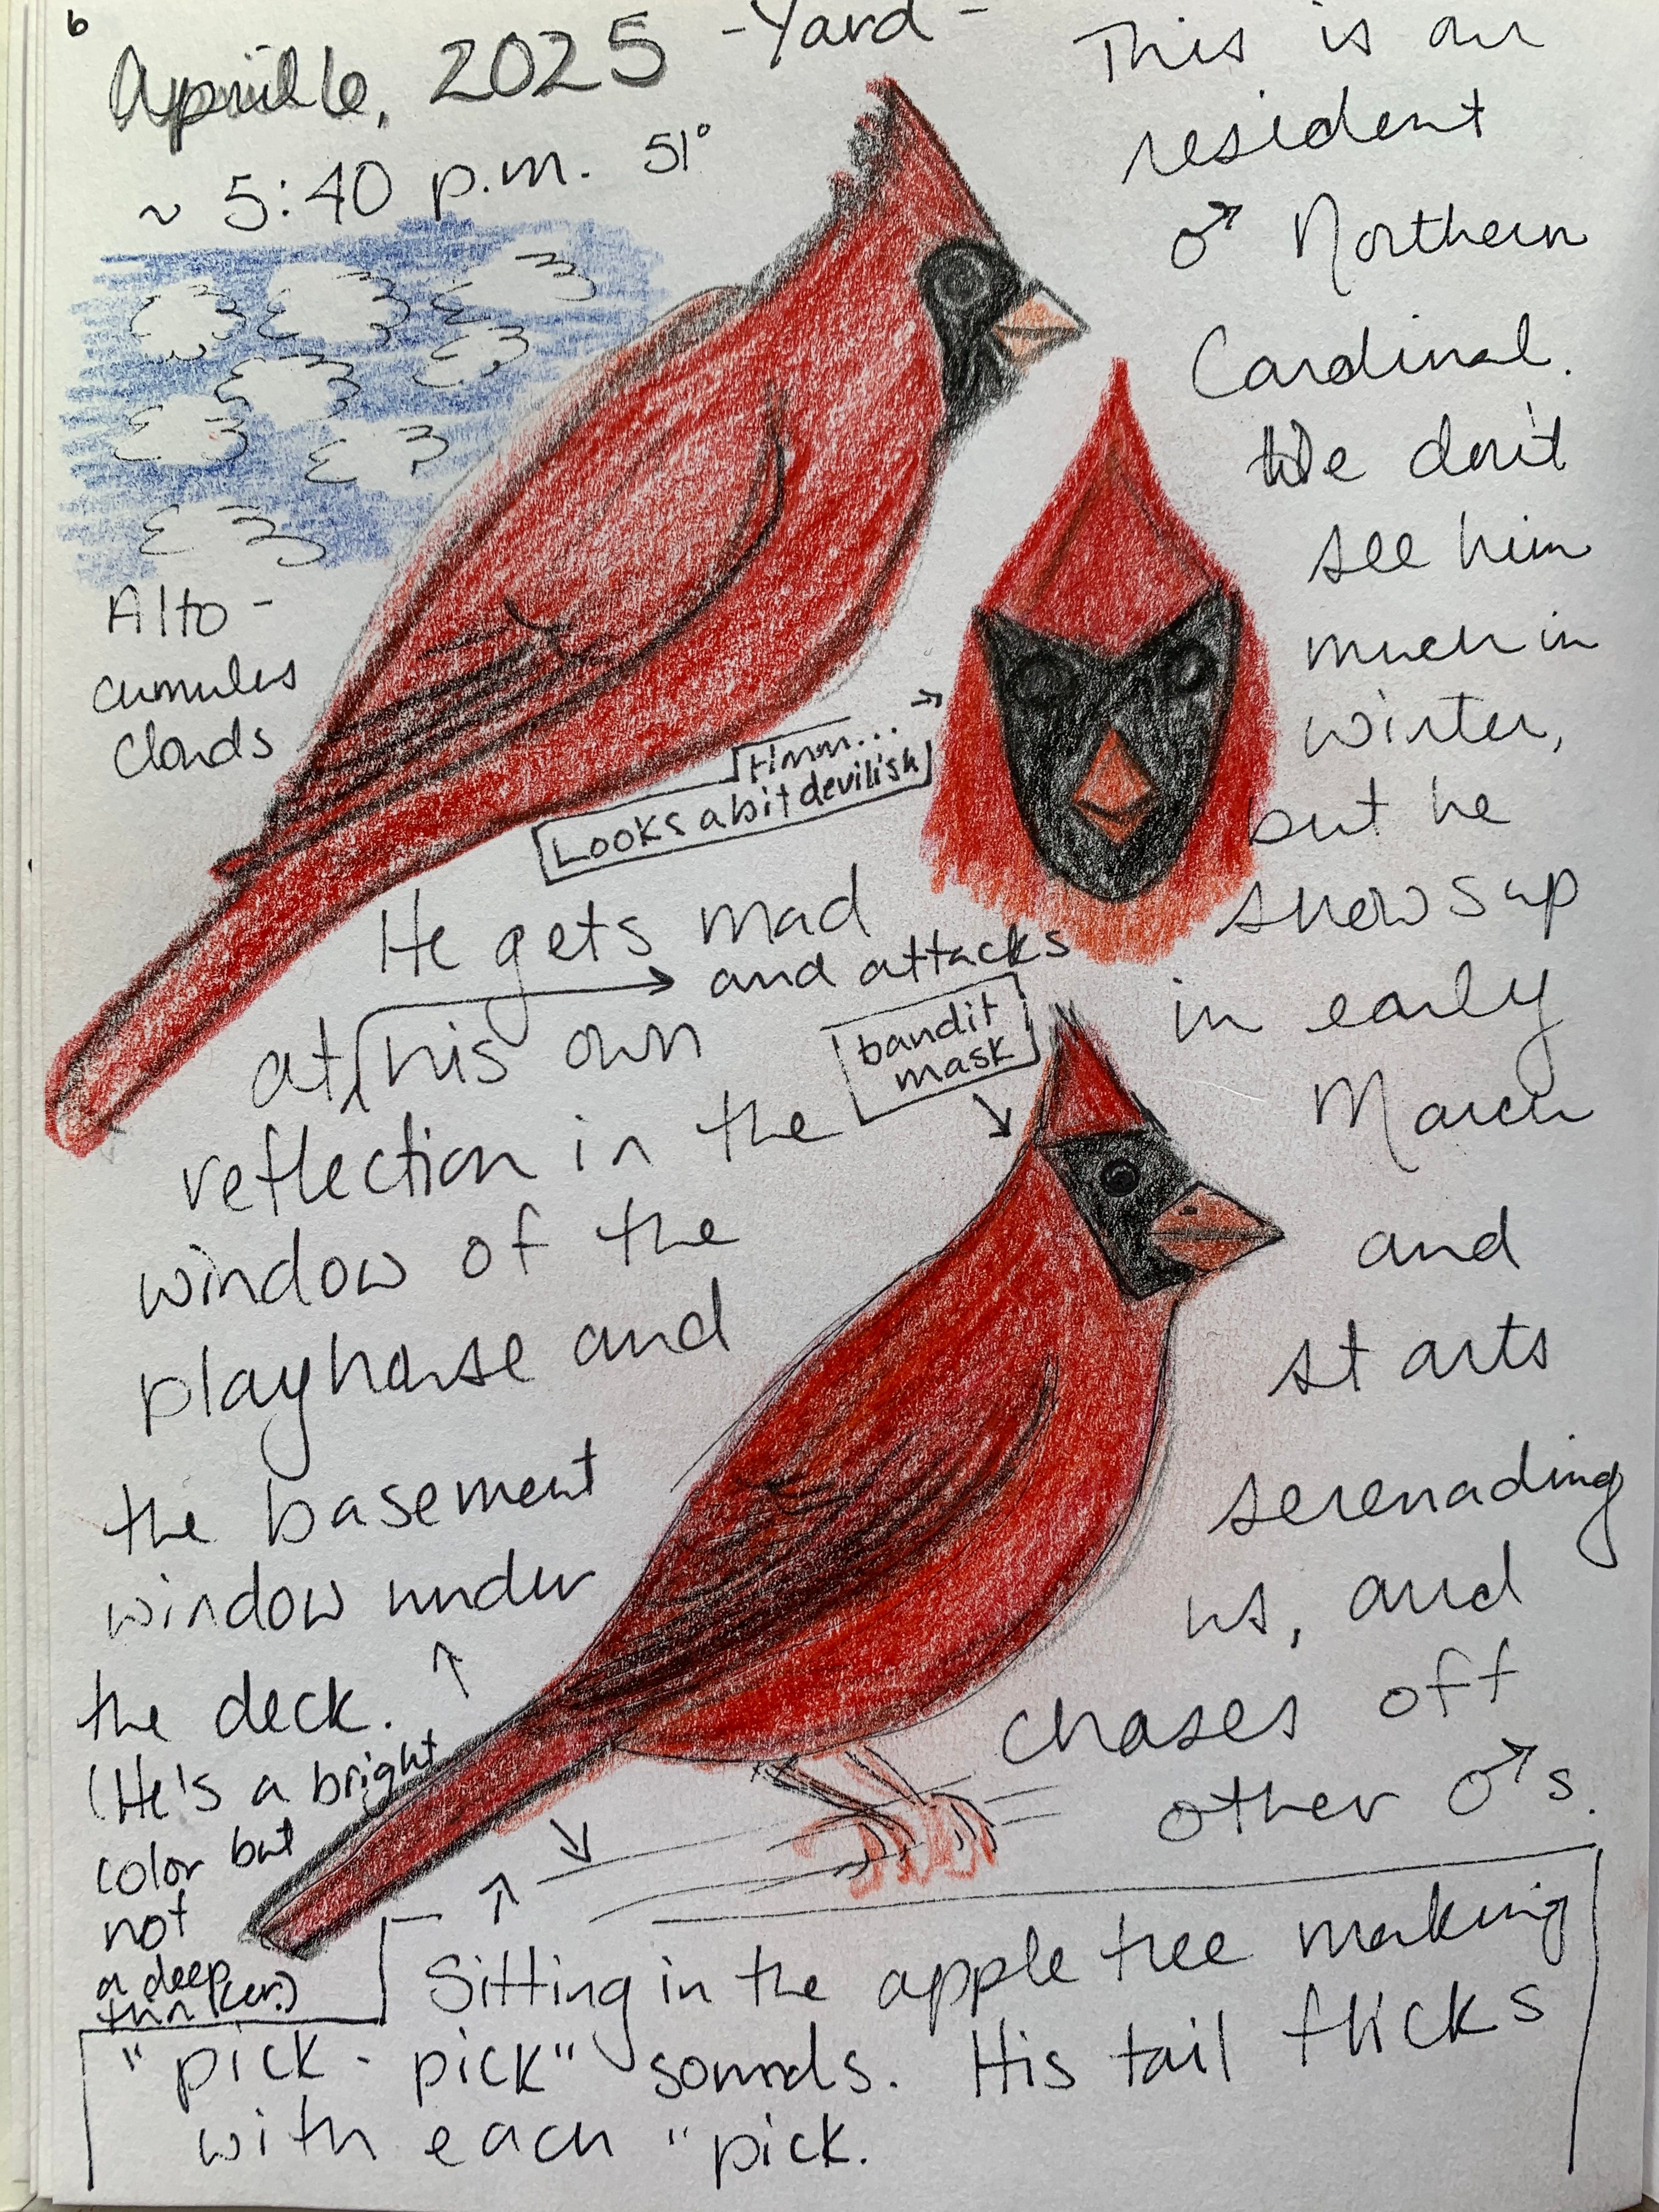 6
April 6, 2025
-Yard-
~ 5:40 p.m. 51°
Alto-
cumulus
clouds
This is our
resident
♂ Northern
Cardinal.
We don't
see him
much in
winter,
but he
shows up
in early
March
and
starts
serenading
us, and
chases off
other ♂s.
Hmm...
Looks a bit devilish
He gets mad
and attacks
at his own
reflection in the
window of the
playhouse and
the basement
window under
the deck.
(He's a bright
color but
not
a deep
thinker.)
bandit
mask
Sitting in the apple tree making
"pick-pick" sounds. His tail flicks
with each "pick.